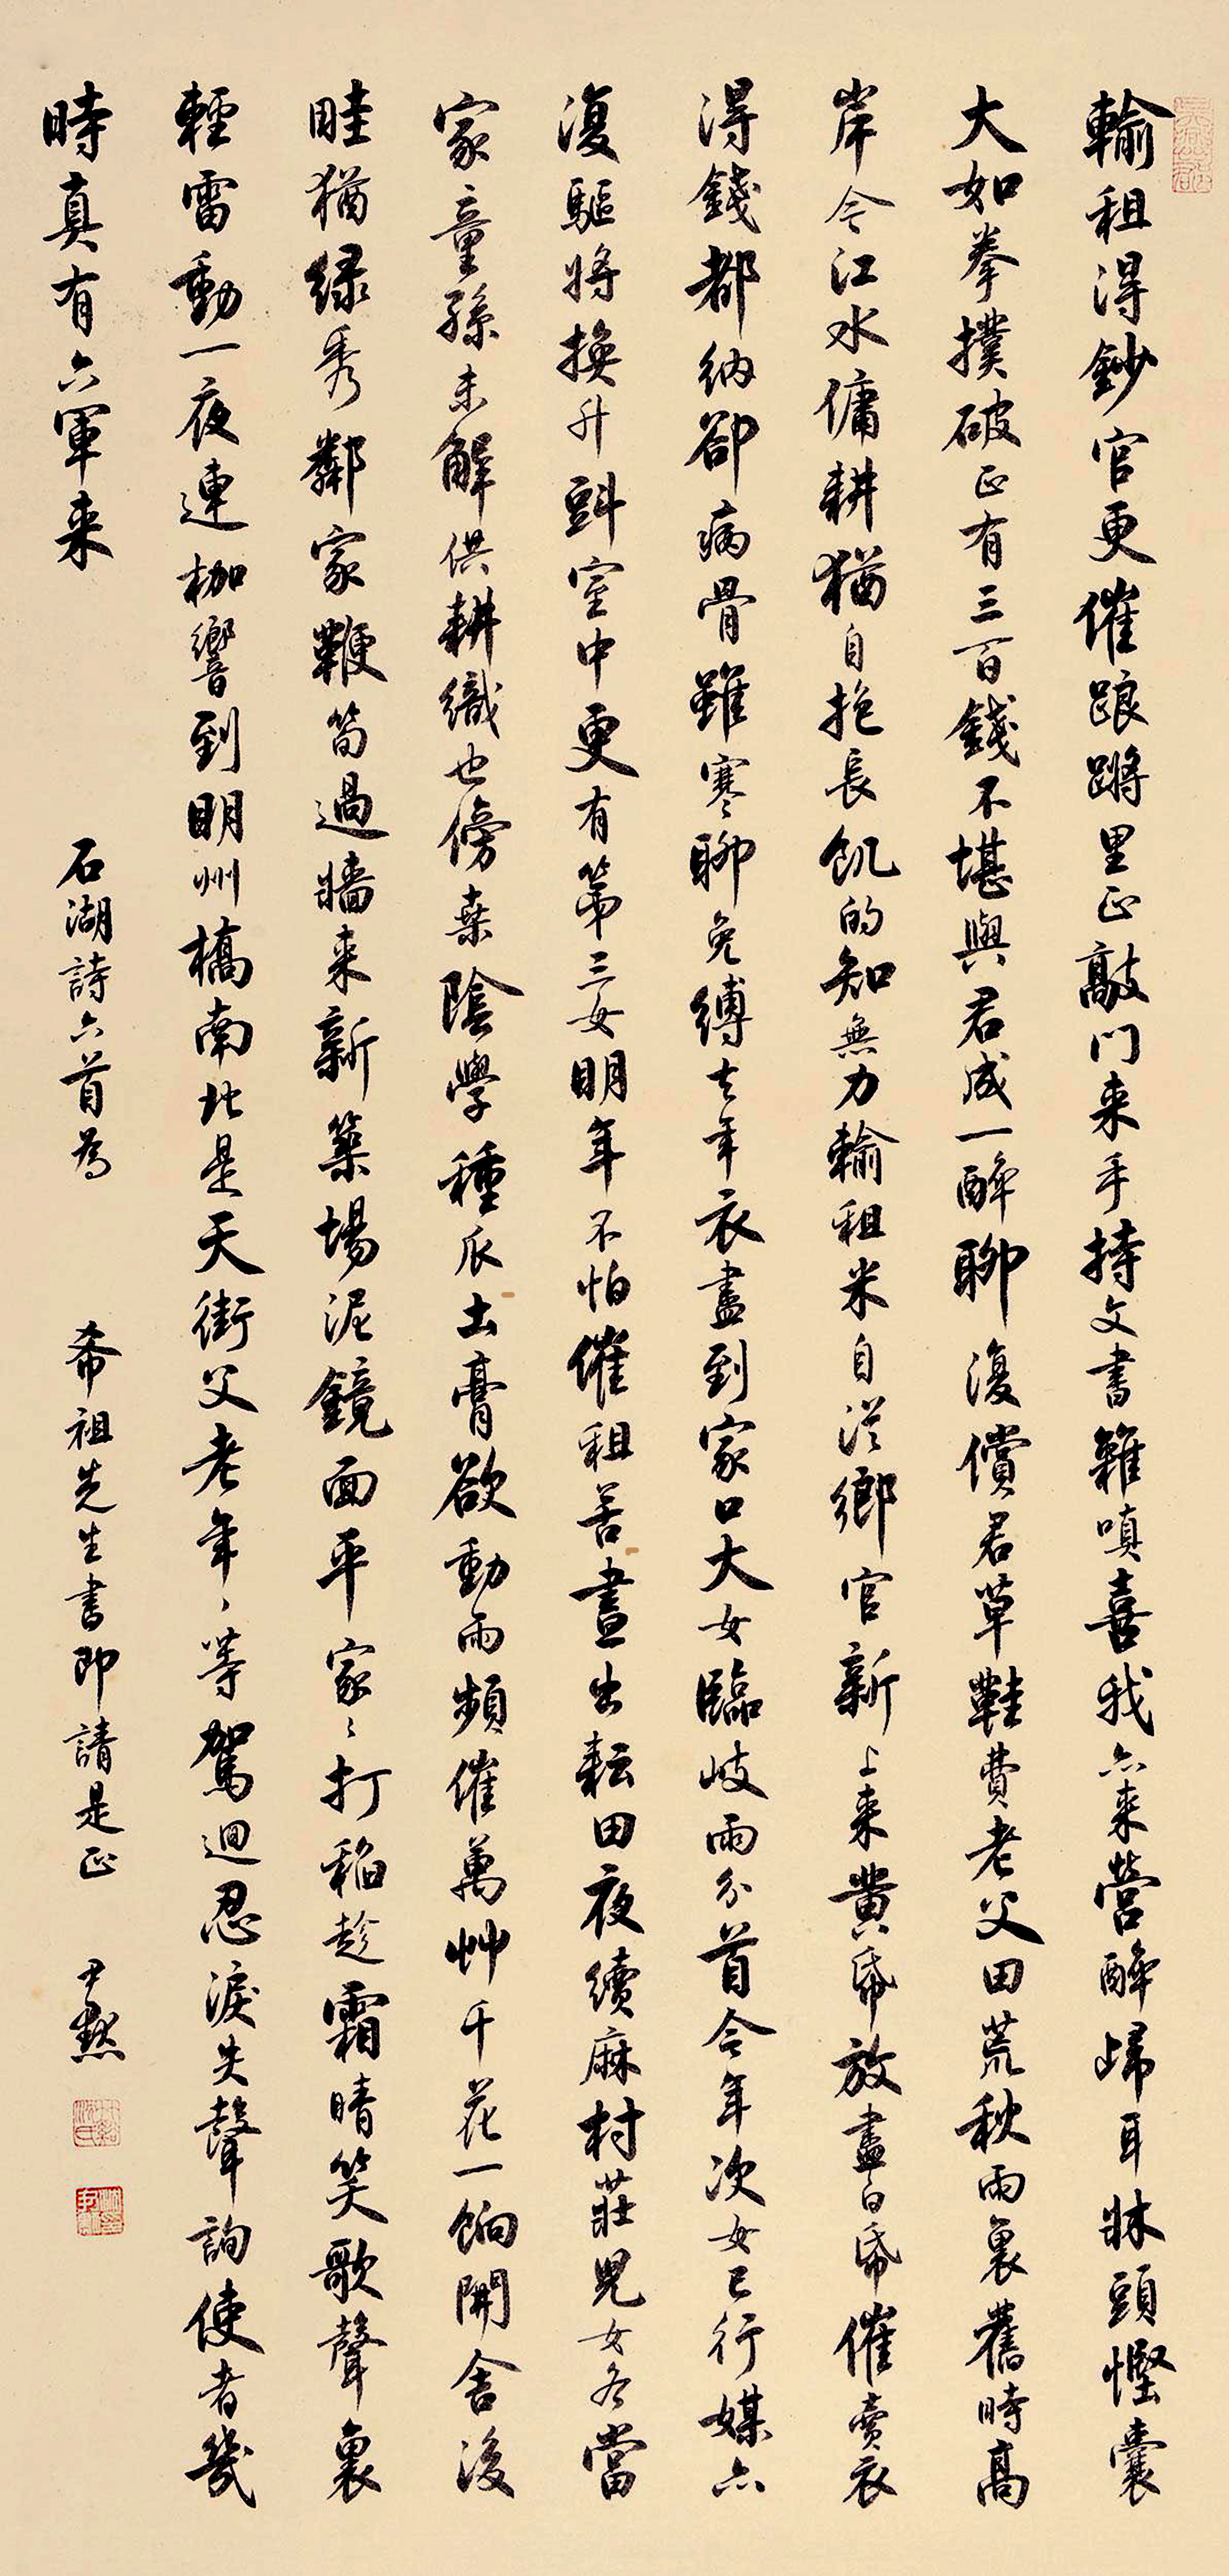 輸租得鈔官更催踉蹡里正敲門来手持文書雜嗔喜我亦来營醉歸耳牀頭慳囊
大如拳撲破正有三百錢不堪與君成一醉聊復償君草鞋費老父田荒秋雨裏舊時高
岸今江水傭耕猶自抱長飢的知無力輸租米自從鄉官新上来黄帋放盡白帋催賣衣
得錢都納郤病骨雖寒聊免縛去年衣盡到家口大女臨岐兩分首今年次女已行媒亦
復驅將換升斗室中更有第三女明年不怕催租苦晝出耘田夜績麻村莊兒女各當
家童孫未解供耕織也傍桒陰學種瓜土膏欲動雨頻催萬艸千花一餉開舍後
畦猶绿秀鄰家鞭筍過牆来新築場泥鏡面平家〻打稻趁霜晴笑歌聲裏
輕雷動一夜連枷響到明州橋南北是天街父老年〻等駕迴忍淚失聲詢使者幾
時真有六軍来
石湖詩六首為
希祖先生書即請是正
尹默